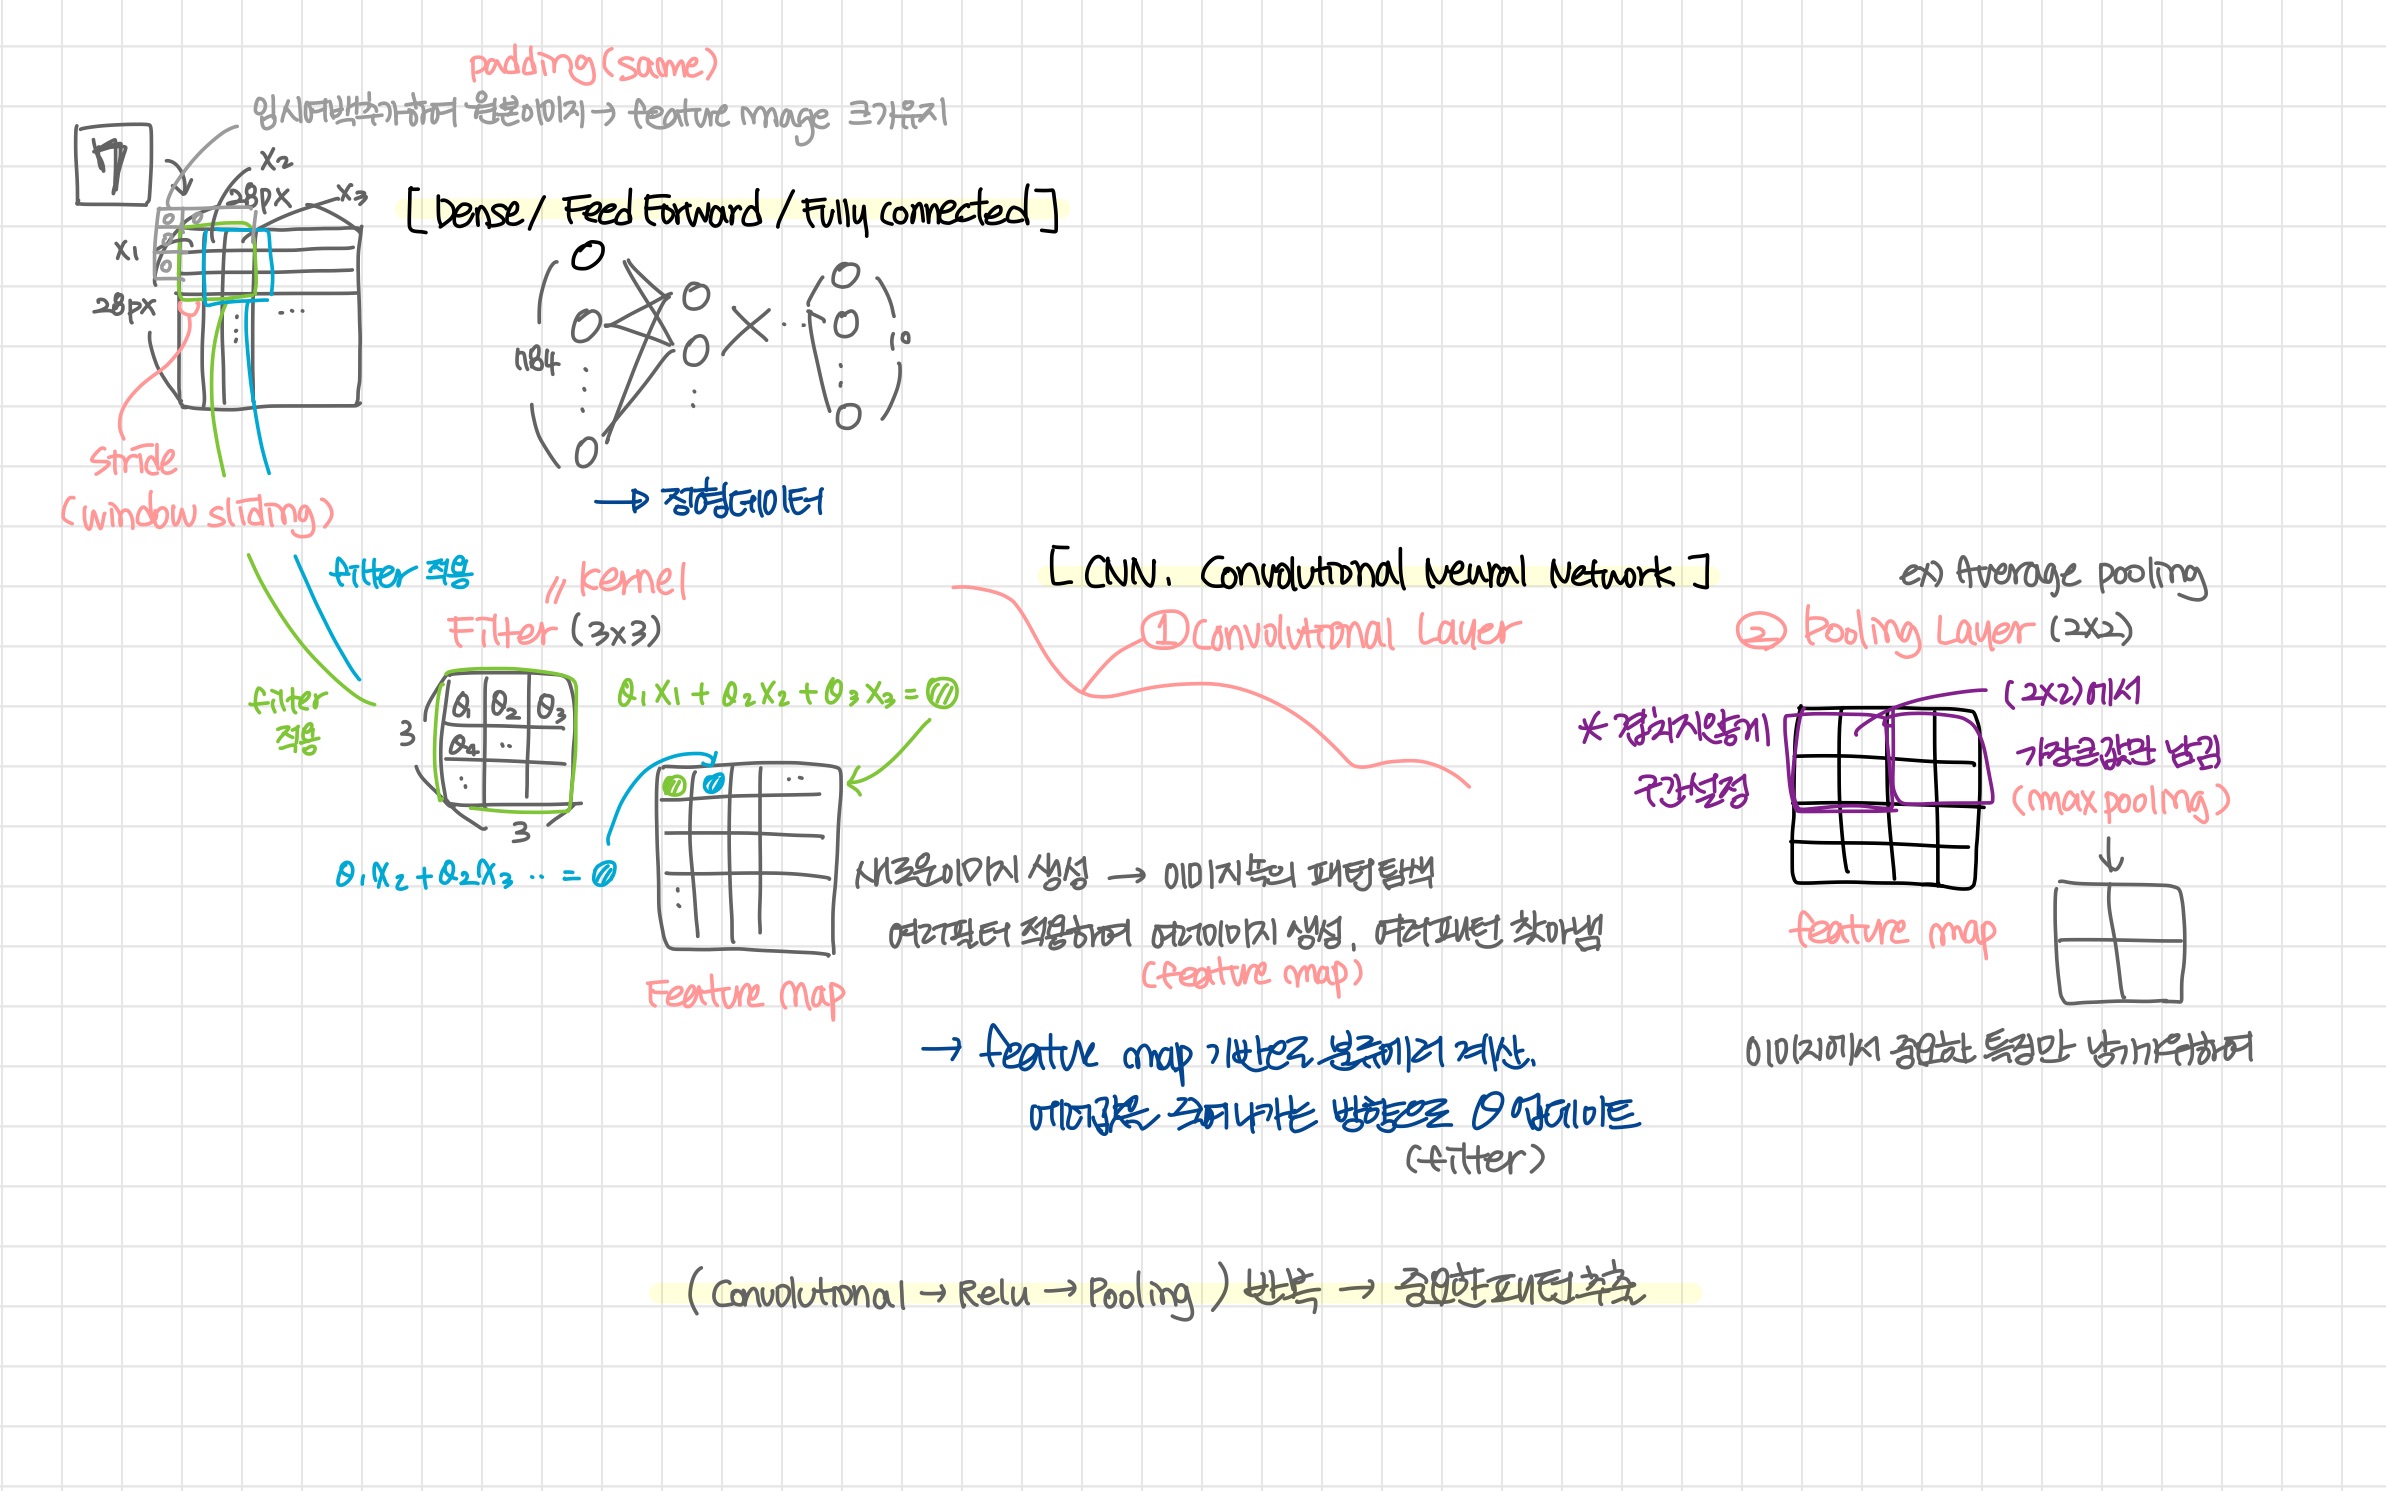 padding(same)
임시여백추가하여 원본이미지 → feature image 크기유지
7
x2
28px
x3
x1
28px
0
0
0
0
...
[ Dense / Feed Forward / Fully connected ]
784
10
→ 정형데이터
stride
(window sliding)
filter 적용
filter
적용
// kernel
Filter (3x3)
θ1 θ2 θ3
θ4 ..
3
3
θ1x1 + θ2x2 + θ3x3 =
θ1x2 + θ2x3 ·· =
Feature map
[ CNN. Convolutional Neural Network ]
① Convolutional Layer
새로운이미지 생성 → 이미지 속의 패턴 탐색
여러필터 적용하여 여러이미지 생성. 여러패턴 찾아냄
(feature map)
→ feature map 기반으로 분류에러 계산.
에러값은 줄여나가는 방향으로 θ 업데이트
(filter)
ex) Average pooling
② Pooling Layer (2x2)
* 겹치지않게
구간설정
(2x2)에서
가장큰값만 남김
(max pooling)
feature map
이미지에서 중요한 특징만 남기기위하여
(Convolutional → Relu → Pooling) 반복 → 중요한 패턴 추출